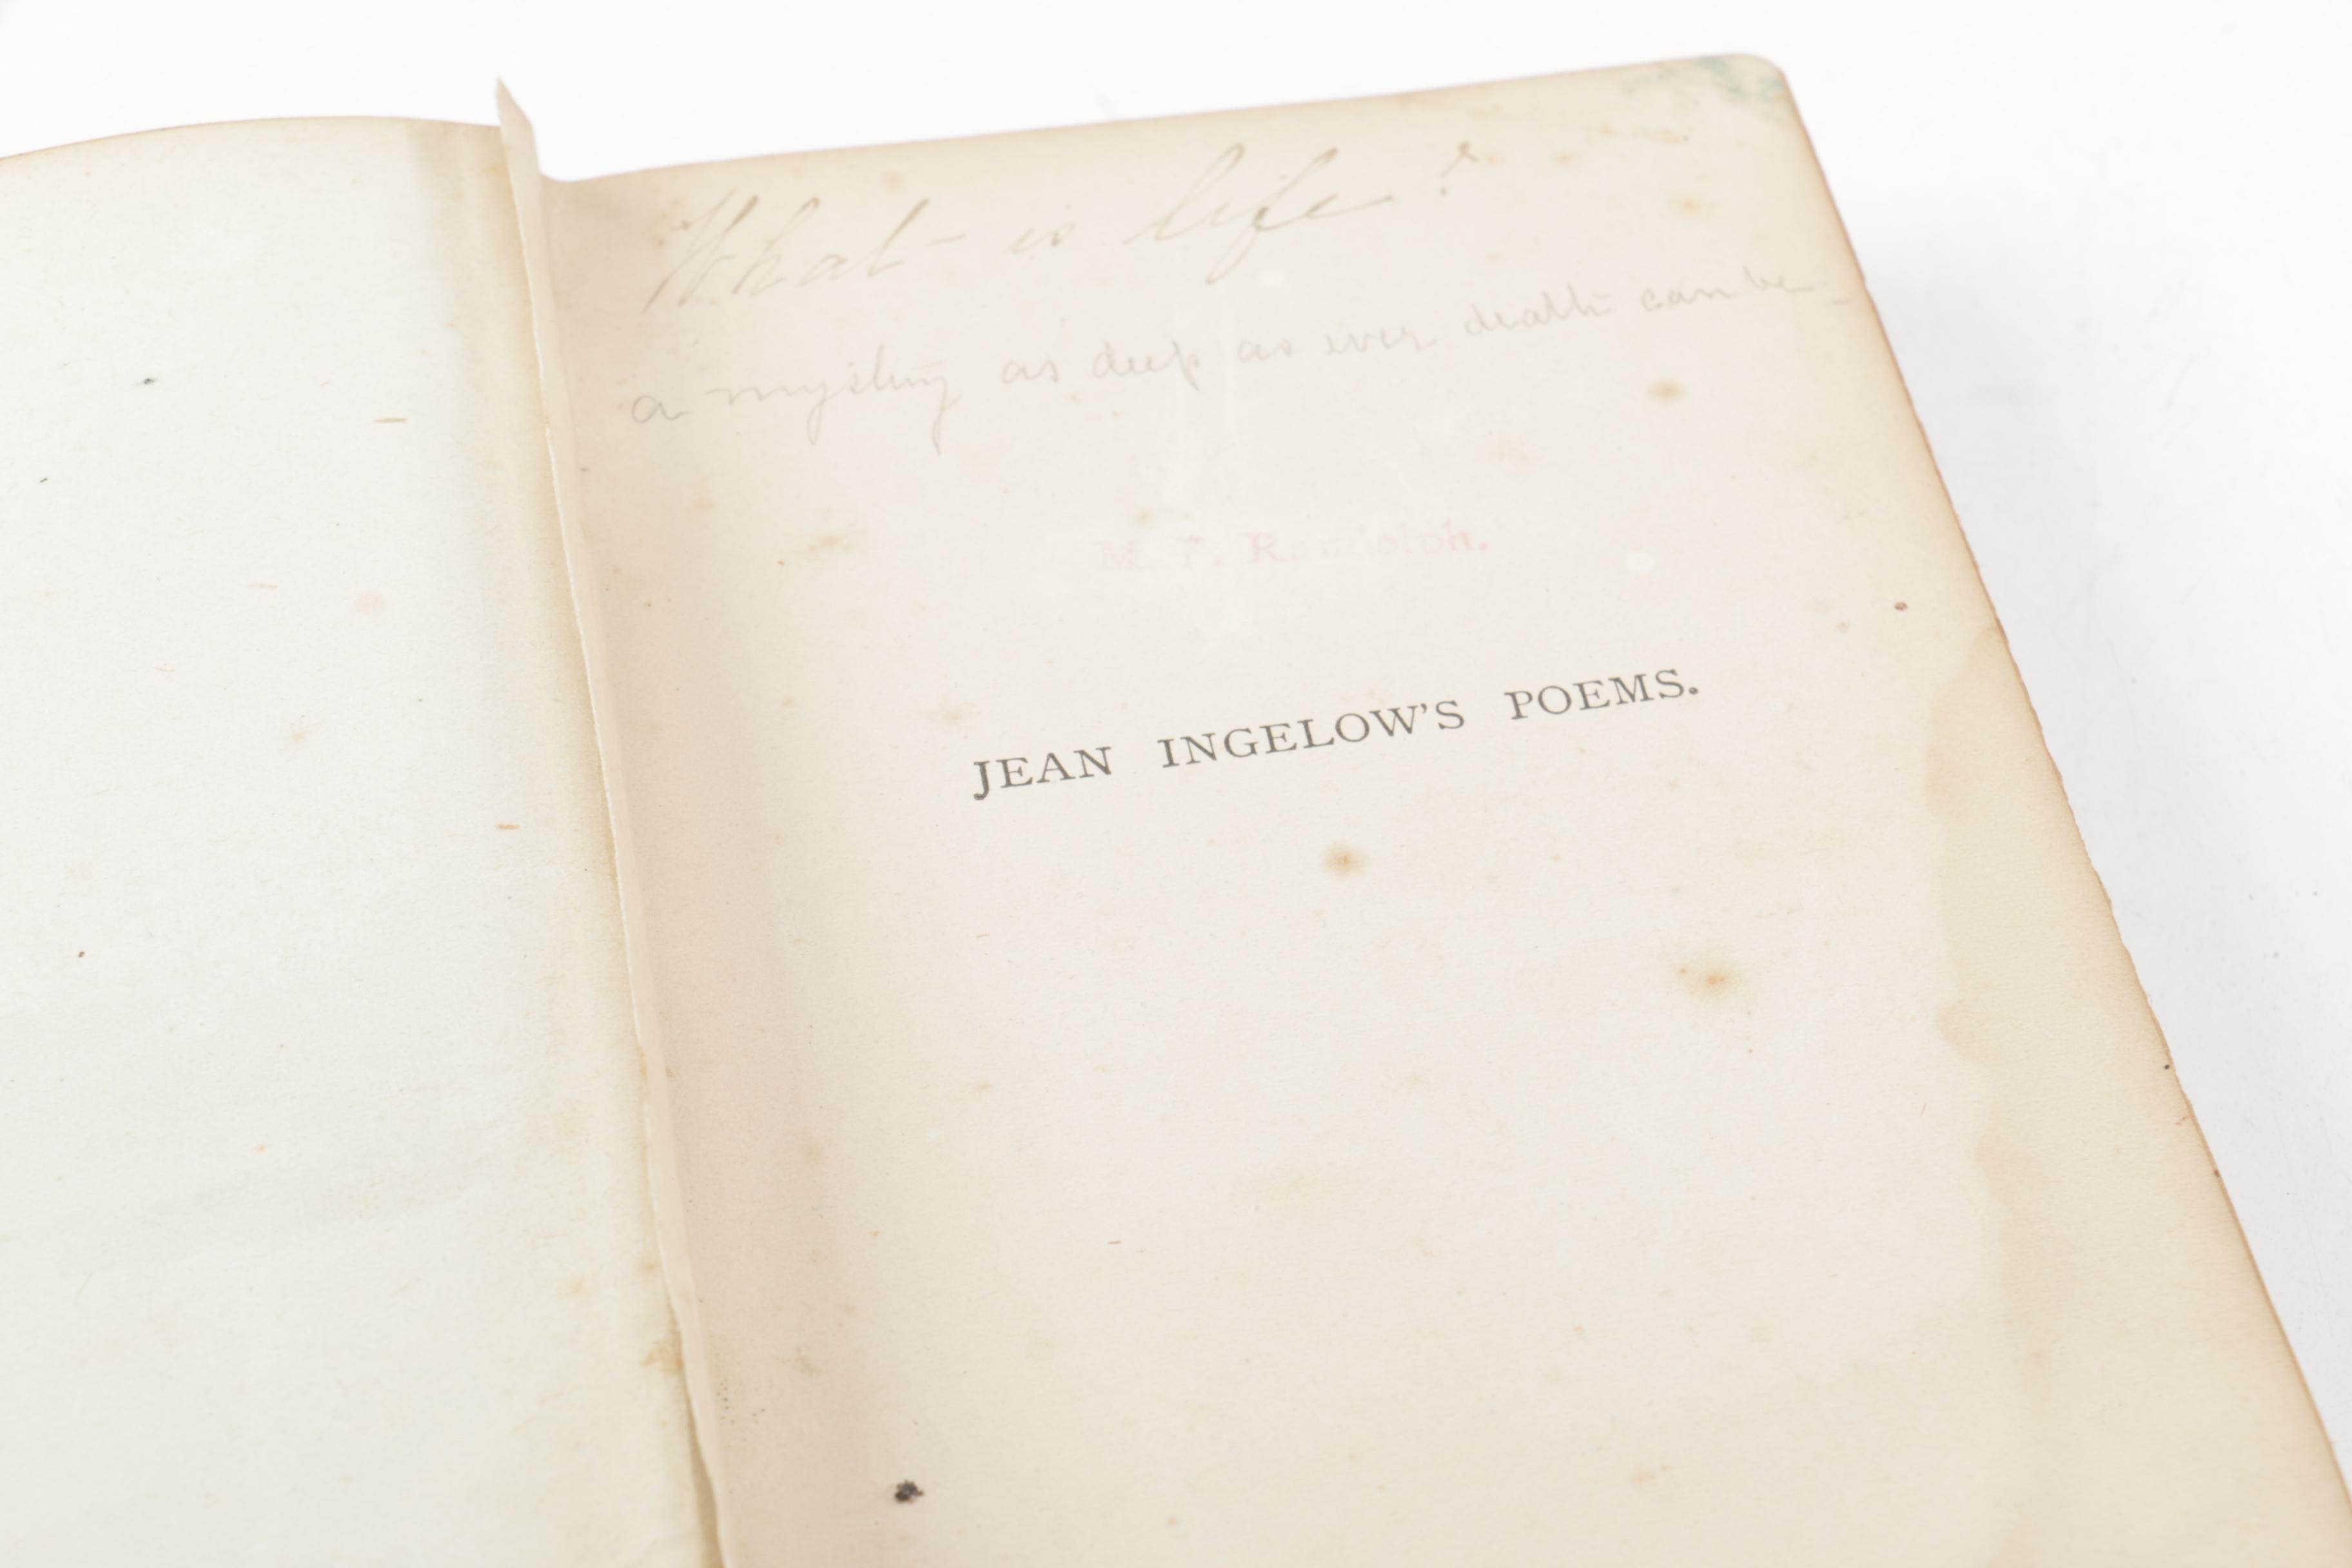 What is life?
a mystery as deep as ever death can be_
M. Randolph.
JEAN INGELOW'S POEMS.